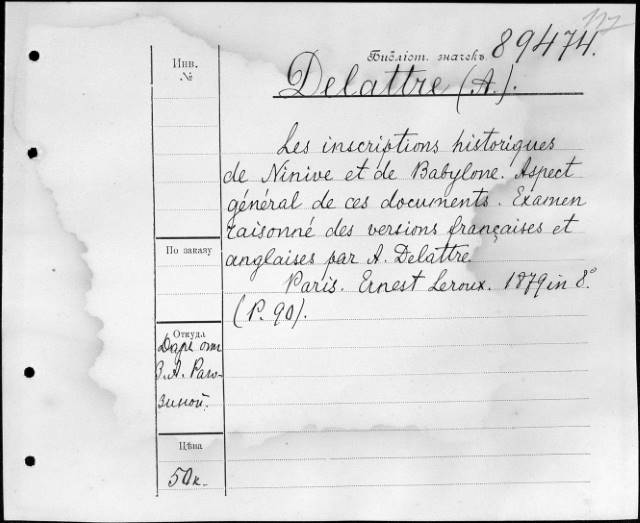 Инв.
№
Библіот. значекъ. 89474.
Delattre (A.).
Les inscriptions historiques
de Ninive et de Babylone. Aspect
général de ces documents. Examen
raisonné des versions françaises et
anglaises par A. Delattre
Paris. Ernest Leroux. 1879 in 8°.
(P. 90).
По заказу
Откуда
Даръ отъ
З. А. Раго-
зиной.
Цѣна
50 к.